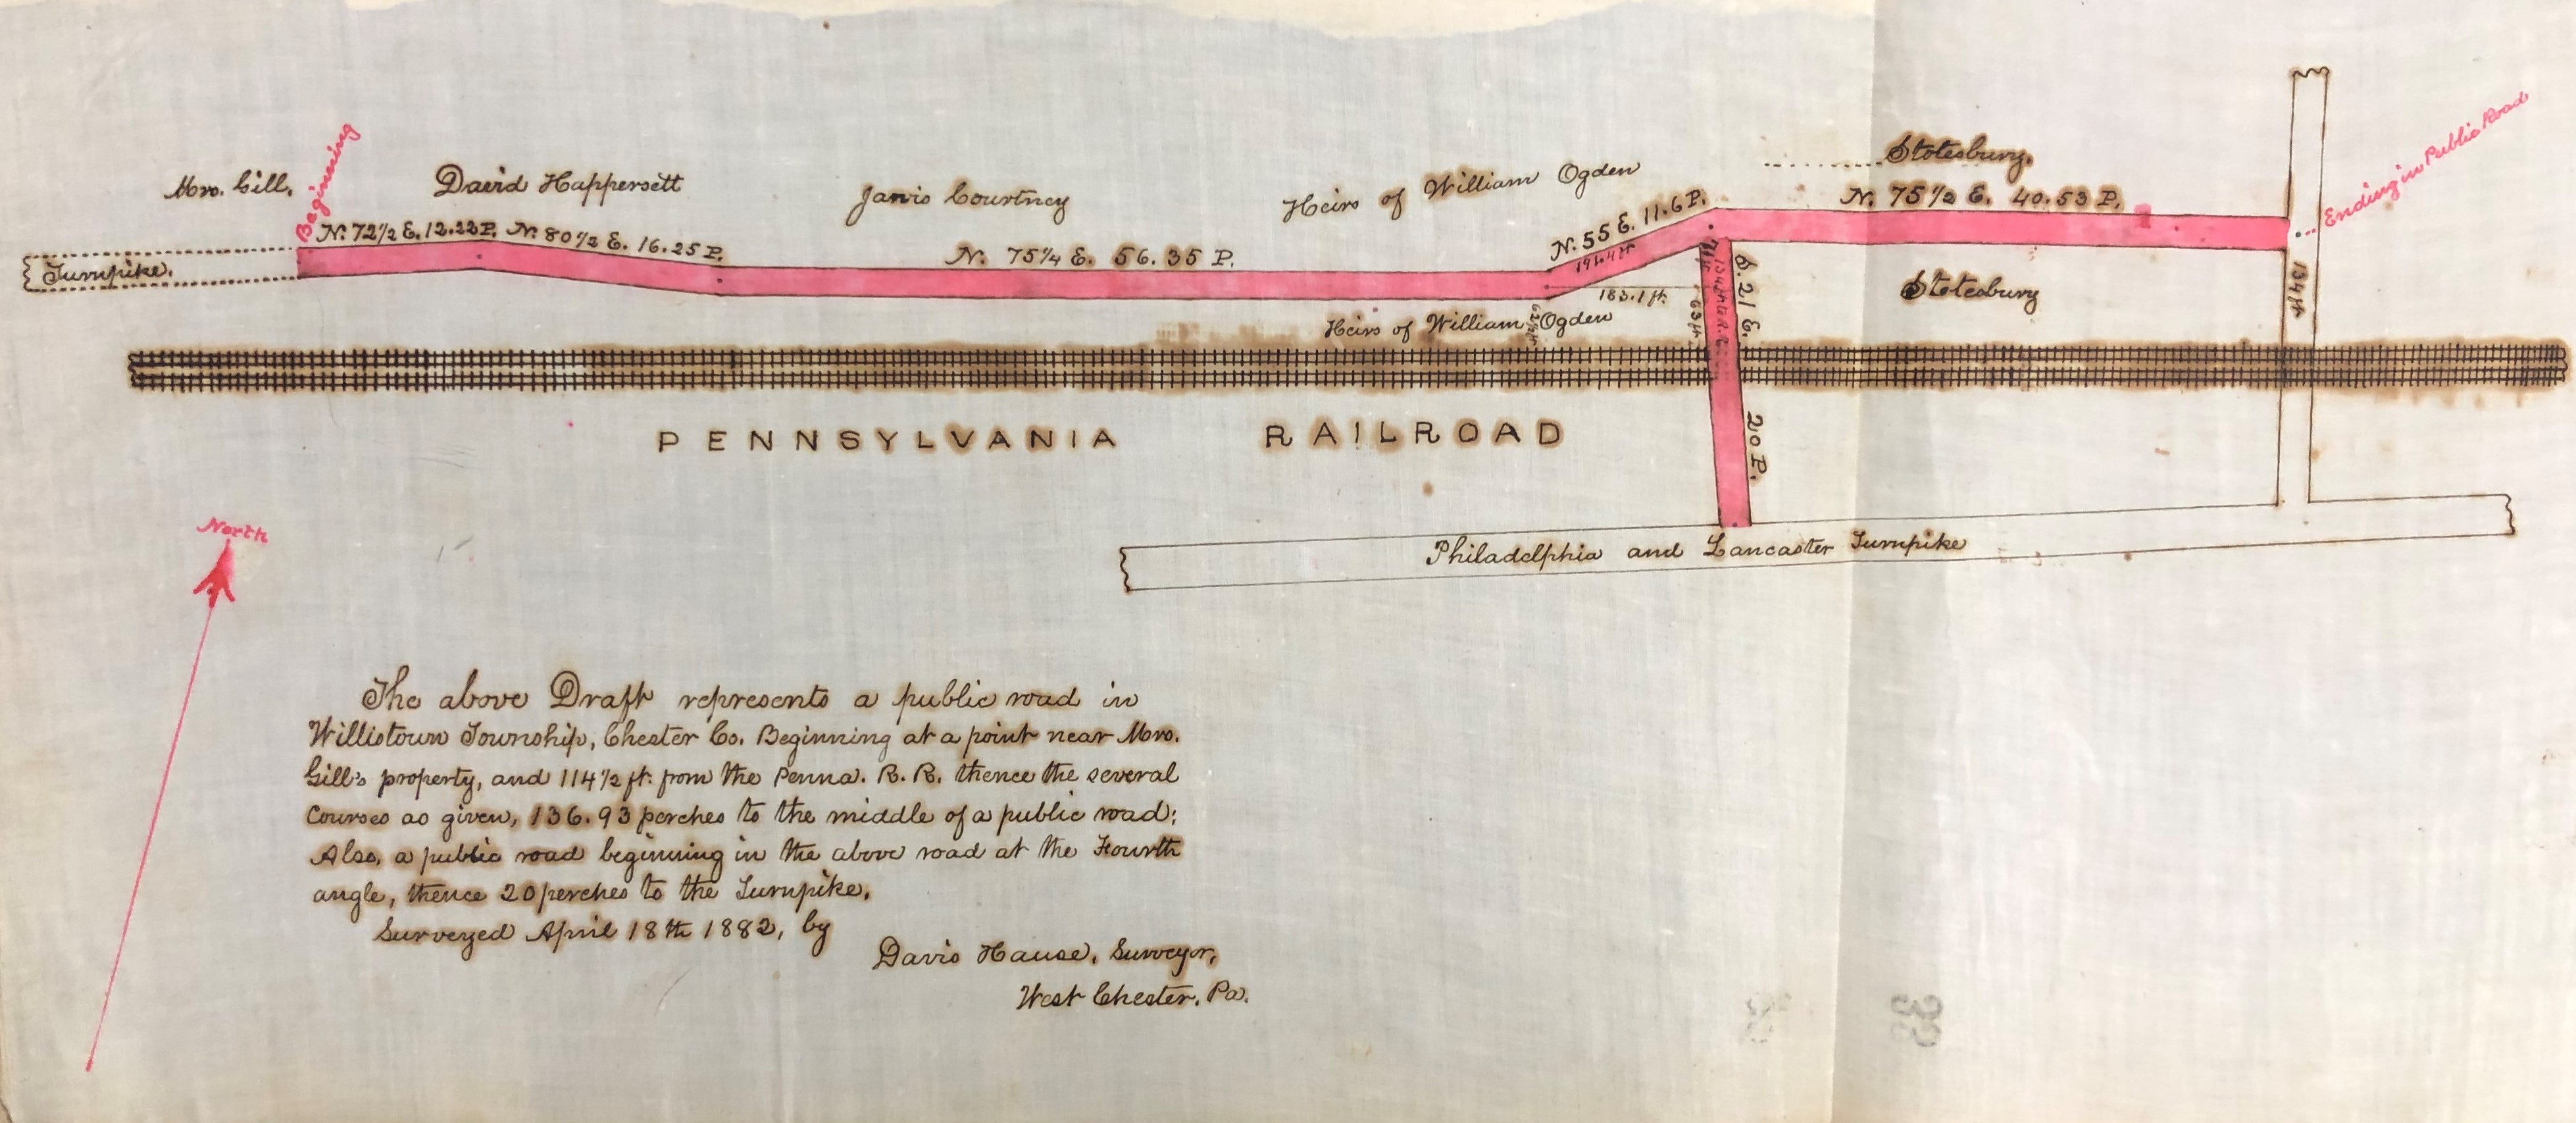 Stotesbury.
Ending in Public Road
Beginning
Mrs. Gill.
David Happersett
Janis Courtney
Heirs of William Ogden
N. 72½ E. 12.22 P.
N. 80½ E. 16.25 P.
N. 75¼ E. 56.35 P.
N. 55 E. 11.6 P.
N. 75½ E. 40.53 P.
Turnpike.
183.1 ft.
63 ft
S. 21 E.
20 P.
134 ft
Stotesbury
Heirs of William Ogden
PENNSYLVANIA RAILROAD
Philadelphia and Lancaster Turnpike
North
The above Draft represents a public road in
Willistown Township, Chester Co. Beginning at a point near Mrs.
Gill's property, and 114½ ft. from the Penna. R. R. thence the several
Courses as given, 136.93 perches to the middle of a public road;
Also, a public road beginning in the above road at the Fourth
angle, thence 20 perches to the Turnpike.
Surveyed April 18th 1882, by
Davis Hause, Surveyor,
West Chester, Pa.